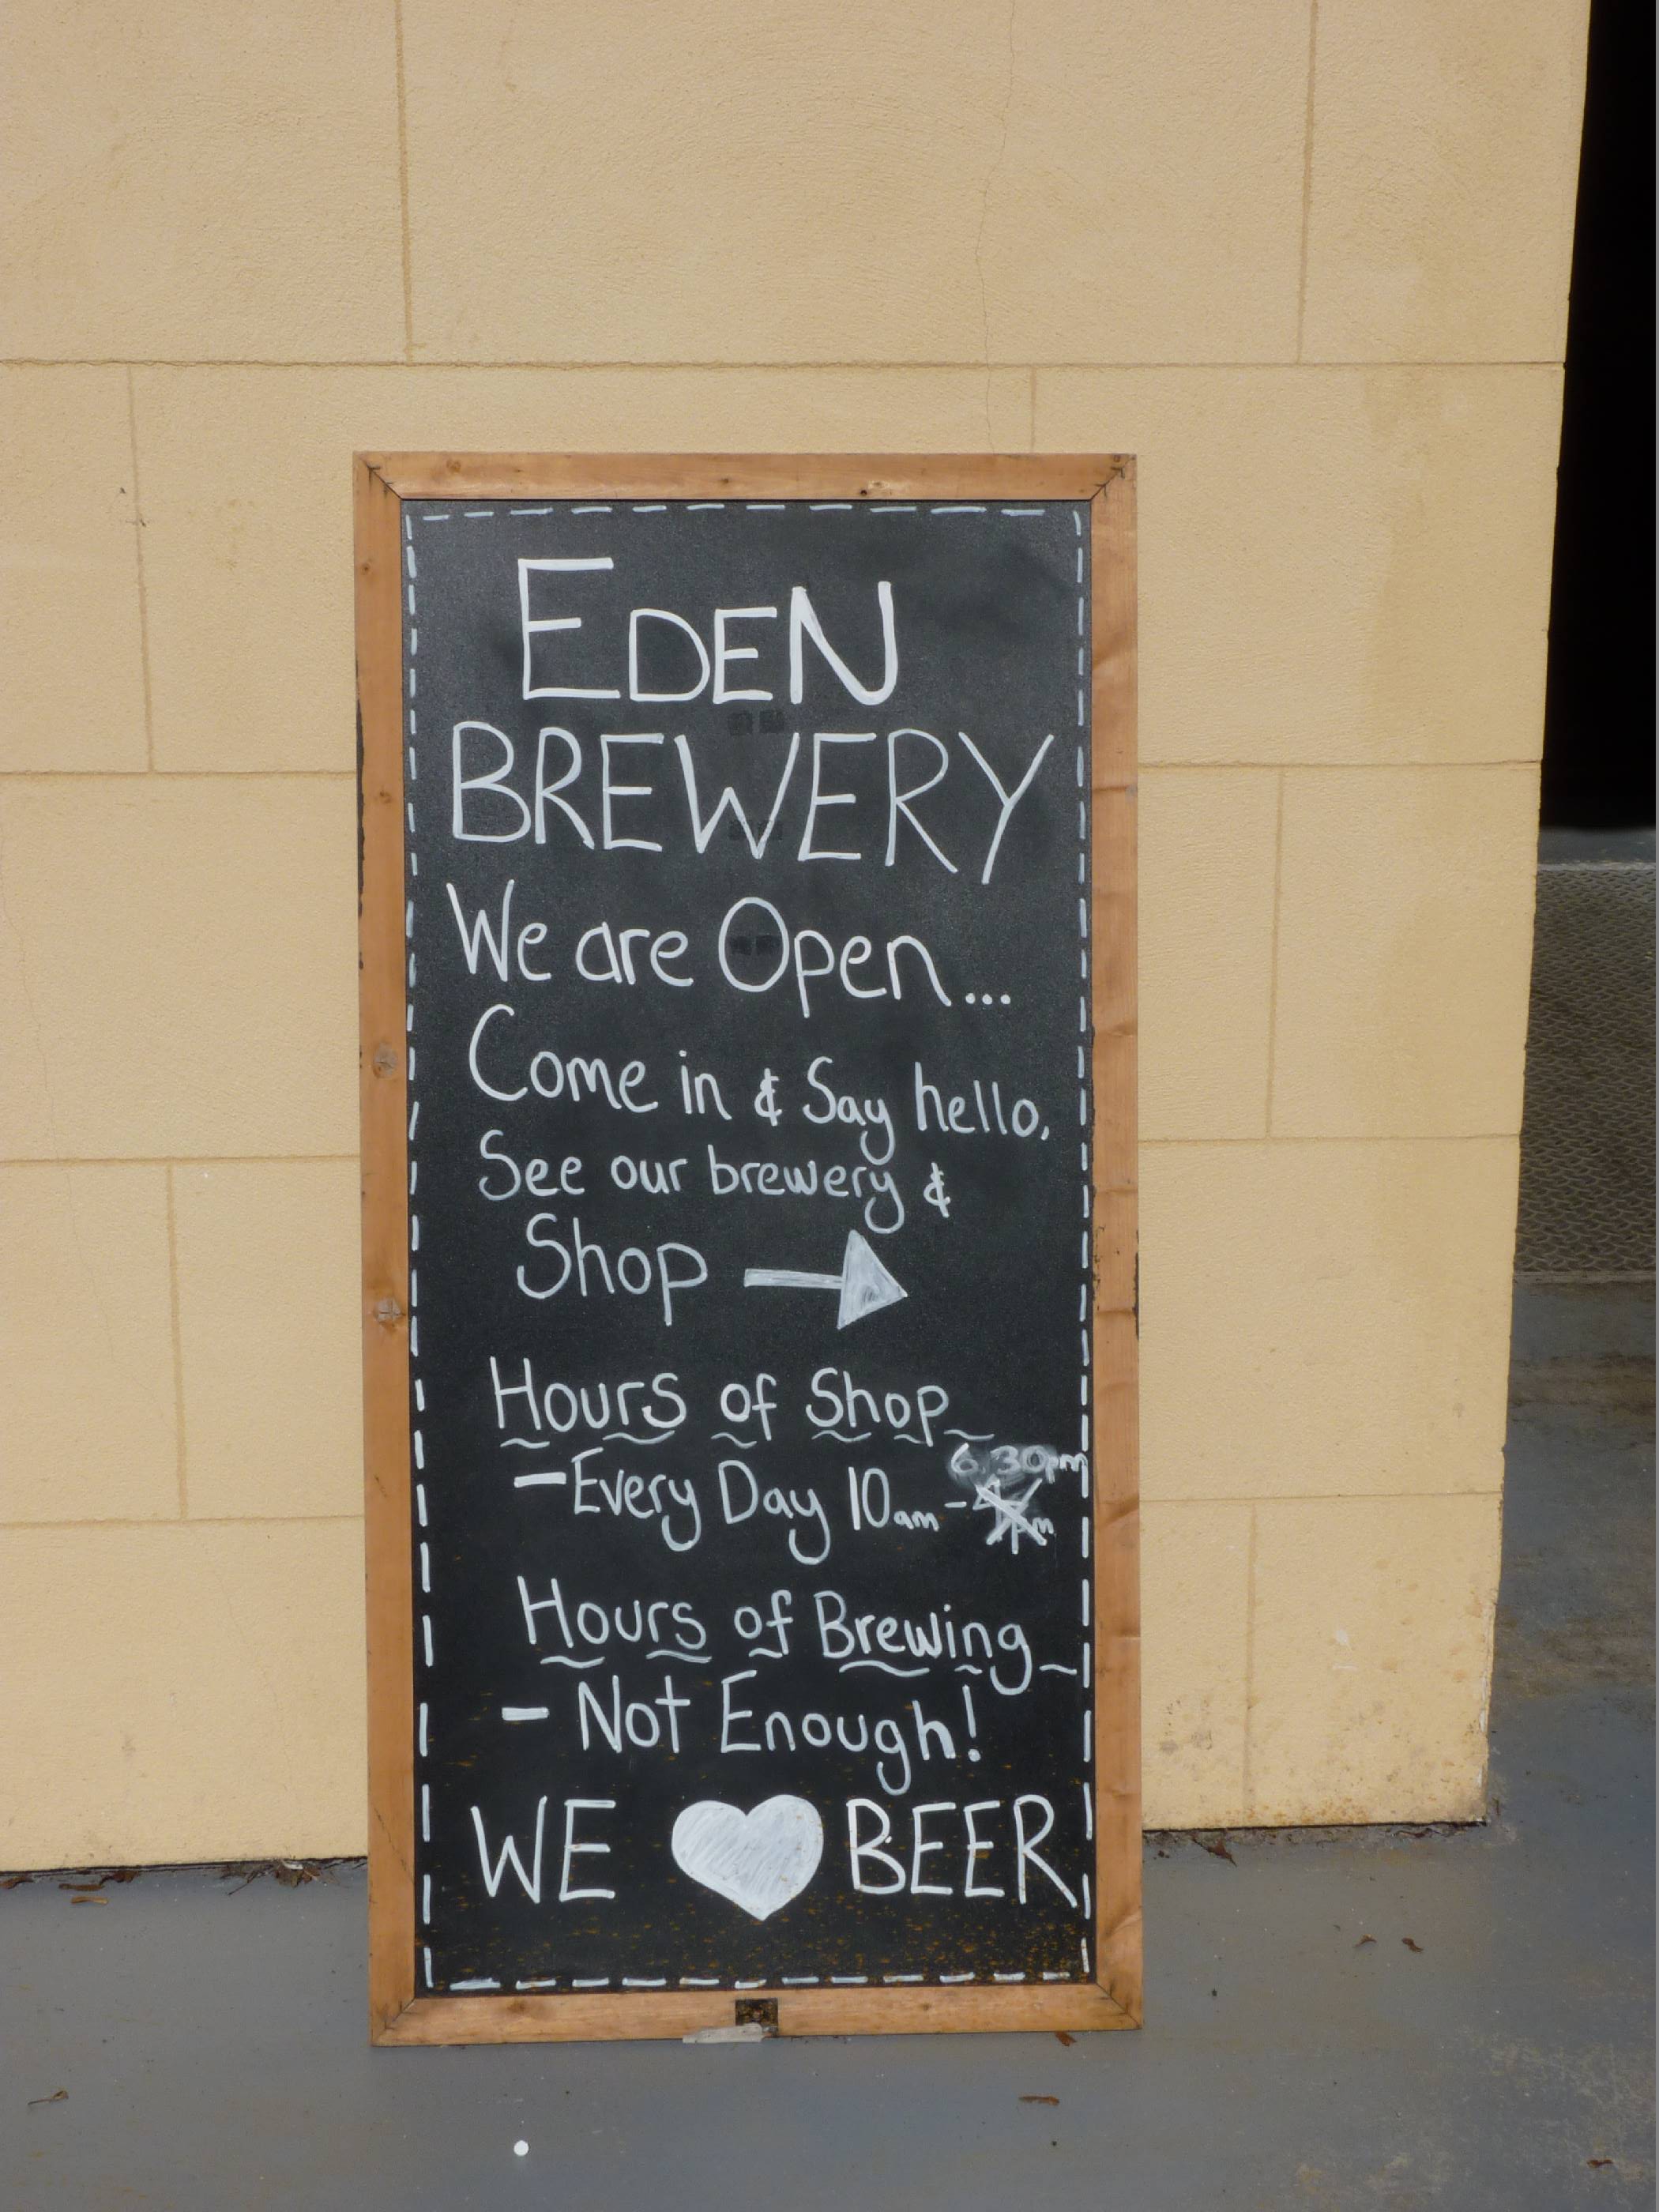 EDEN
BREWERY
We are Open...
Come in & Say hello,
See our brewery &
Shop
Hours of Shop
6.30pm
- Every Day 10am - 4pm
Hours of Brewing
- Not Enough!
WE ♥ BEER